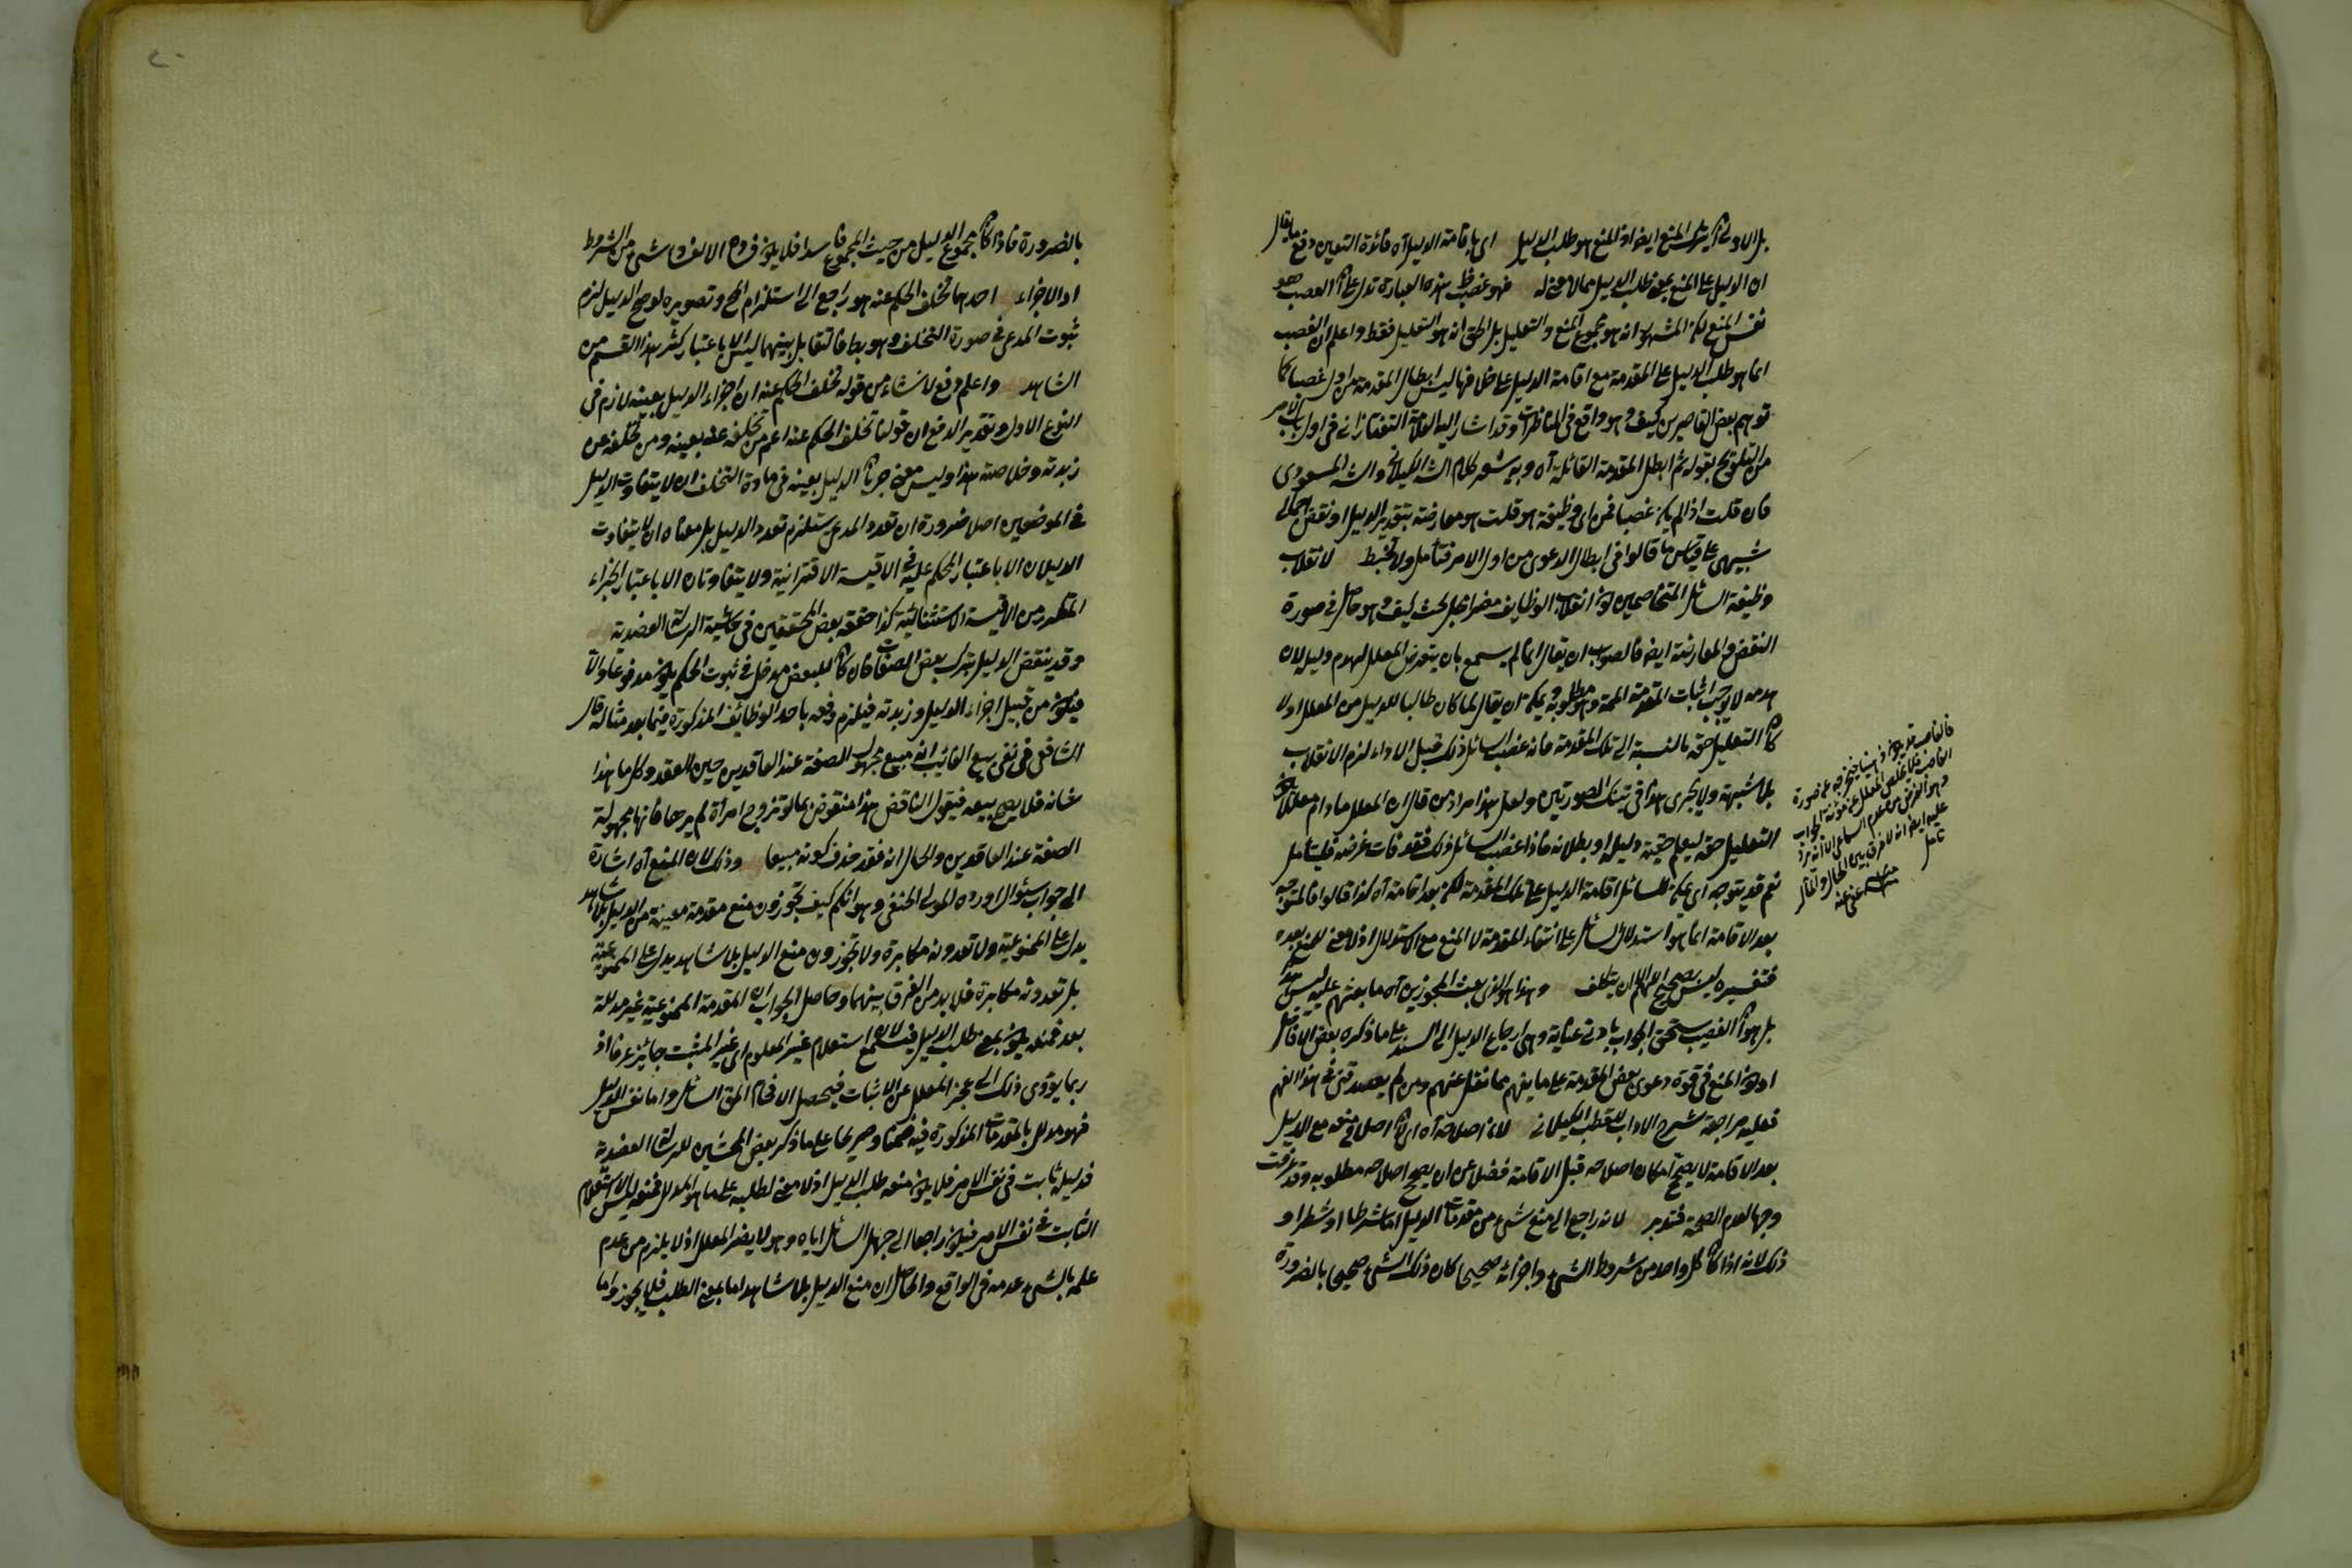 بل الاولى ان يترك المنع ايضا اذ المنع هو طلب الدليل اى باقامة الدليل آه فائدة التعيين دفع ما يقال
ان الدليل على المنع يعنى طلب الدليل مما لا معنى له فهو غصب هذه العبارة تدل على ان الغصب هو
نفس المنع لكن المشهور انه هو مجموع المنع والتعليل بل الحق انه هو التعليل فقط واعلم ان الغصب
انما هو طلب الدليل على المقدمة مع اقامة الدليل على خلافها ليس ابطال المقدمة من اول غصبا كما
توهم بعض القاصرين كيف وهو واقع فى المناظرات وقد اشار اليه العلامة التفتازانى فى اول باب الامر
من التلويح بقوله ثم ابطل المقدمة القائلة آه وبه يشعر كلام الشه الكيلانى والشه المسعودى
فان قلت اذا لم يكن غصبا فمن اى وظيفة هو قلت هو معارضة بتقدير الدليل او نقض اجمالى
شبيهى على قياس ما قالوا فى ابطال الدعوى من اول الامر فتأمل ولا تخبط لانقلاب
وظيفة السائل المتخاصمين لان انقلاب الوظايف مضر اهل بحث كيف وهو حاصل فى صورة
النقض والمعارضة ايضا فالصواب ان يقال انما لم يسمع بان يتعرض المعلل لهدم دليله لان
هدمه لا يوجب اثبات المقدمة الممنوعة وهو مطلوبه ويمكن ان يقال لما كان طالبا للدليل من المعلل اولا
كان التعليل حقه بالنسبة الى تلك المقدمة فانه غصب السائل ذلك قبل الاداء لزم الانقلاب
بلا شبهة ولا يجرى هذا فى تينك الصورتين ولعل هذا مراد من قال ان المعلل ما دام معللا يكون
التعليل حقه ليعلم حقية دليله او بطلانه فاذا غصب السائل ذلك فقد فات غرضه فليتأمل
نعم قد يتوجه اى يمكن للسائل اقامة الدليل على تلك المقدمة لكن بعد اقامة آه كذا قالوا فالمتوجه
بعد الاقامة انما هو استدلال السائل على انتفاء المقدمة لا المنع مع الاستدلال اذ لا معنى للمنع بعده
فتفسيره ليس بصحيح اللهم الا ان يتكلف وهذا هو الذى بعث المجوزين آه ما بعثهم عليه ليس هذا
بل هو ان الغصب يستحق الجواب بادنى عناية وهى ارجاع الدليل الى السند على ما ذكره بعض الافاضل
او هو المنع فى قوة دعوى بعض المقدمة على ما يفهم مما نقل عنهم ومن لم يصدقنى فى هذا الفهم
فعليه مراجعة شرح الاداب للقطب الكيلانى لان اصلاحه آه اى ان اصلاح منعه مع الدليل
بعد الاقامة لا يصح امكان اصلاحه قبل الاقامة فضلا عن ان يصح اصلاحه مطلوبه وقد عرفت
وجها لعدم الصحة فتدبر لانه راجع الى منع شىء من مقدمات الدليل اما شرطا او شطرا و
ذلك لانه اذا كان كل واحد من شروط الشىء واجزائه صحيحا كان ذلك الشىء صحيحا بالضرورة
فالغاصب قد يكون
الغاصب فلا يخلص المعلل عن مؤنة الجواب
عليه ايضا انه لا فرق بين الحال والمآل
تأمل
عفى عنه
٢٠
بالضرورة فاذا كان مجموع الدليل من حيث المجموع فاسدا فلا يكون فساده الا لفساد شىء من الشروط
او الاجزاء احدهما تخلف الحكم عنه هو راجع الى استلزام المح وتصويره لو صح الدليل لزم
ثبوت المدعى فى صورة التخلف وهو بط فالتقابل بينهما ليس الا باعتبار كثرة هذا القسم من
الشاهد واعلم دفع لما نشاء من قوله تخلف الحكم عنه ان اجراء الدليل بعينه لازم فى
النوع الاول وتقدير الدفع ان قولنا تخلف الحكم عنه اعم من تخلفه عنه بعينه ومن تخلفه عن
زبدته وخلاصته هذا وليس معنى جريان الدليل بعينه فى مادة التخلف ان لا يتفاوت الدليل
فى الموضعين اصلا ضرورة ان تعدد المدعى يستلزم تعدد الدليل بل معناه ان لا يتفاوت
الدليلان الا باعتبار المحكم عليه فى الاقيسة الاقترانية ولا يتفاوتان الا باعتبار الجزاء
المتكرر من الاقيسة الاستثنائية كذا حققه بعض المحققين فى حاشية الرسالة العضدية
وقد ينقض الدليل بترك بعض الصفات فان كان للبعض مدخل فى ثبوت الحكم يكون مدفوعا والا
فيكون من قبيل اجراء الدليل وزبدته فيلزم دفعه باحد الوظائف المذكورة فيما بعد مثاله قال
الشافعى فى نفى بيع الغائب انه مبيع مجهول الصفة عند العاقدين حين العقد وكل ما هذا
شانه فلا يصح بيعه فيقول الناقض هذا منقوض بما لو تزوج امرأة لم يرها فانها مجهولة
الصفة عند العاقدين والحال انه فقد حذف كونه مبيعا وذلك لان المنع آه اشارة
الى جواب سئوال اورده المولى الحنفى وهو انكم كيف تجوزون منع مقدمة معينة من الدليل بلا شاهد
يدل على الممنوعية ولا تعدونه مكابرة ولا تجوزون منع الدليل بلا شاهد يدل على الممنوعية
بل تعدونه مكابرة فلا بد من الفرق بينهما وحاصل الجواب ان المقدمة الممنوعة غير مدللة
بعد فمنعه يكون بمعنى طلب الدليل فيسمع لان استعلام غير المعلوم اى غير المثبت جائز عرفا اذ
ربما يؤدى ذلك الى عجز المعلل عن الاثبات فيحصل الافحام الحق السائل واما نفس الدليل
فهو مدلل بالمقدمات المذكورة فيه ضمنا وصريحا على ما ذكر بعض المحشين للرسالة العضدية
فدليله ثابت فى نفس الامر فلا يكون منعه طلب الدليل اذ لا معنى لطلبه على ما هو المدلل فمنعه ليس الا استعلام
الثابت فى نفس الامر فيكون راجعا الى جهل السائل اياه وهو لا يضر المعلل اذ لا يلزم من عدم
علمه بالشىء عدمه فى الواقع والحاصل ان منع الدليل بلا شاهد اما بمعنى الطلب فلا يجوز واما